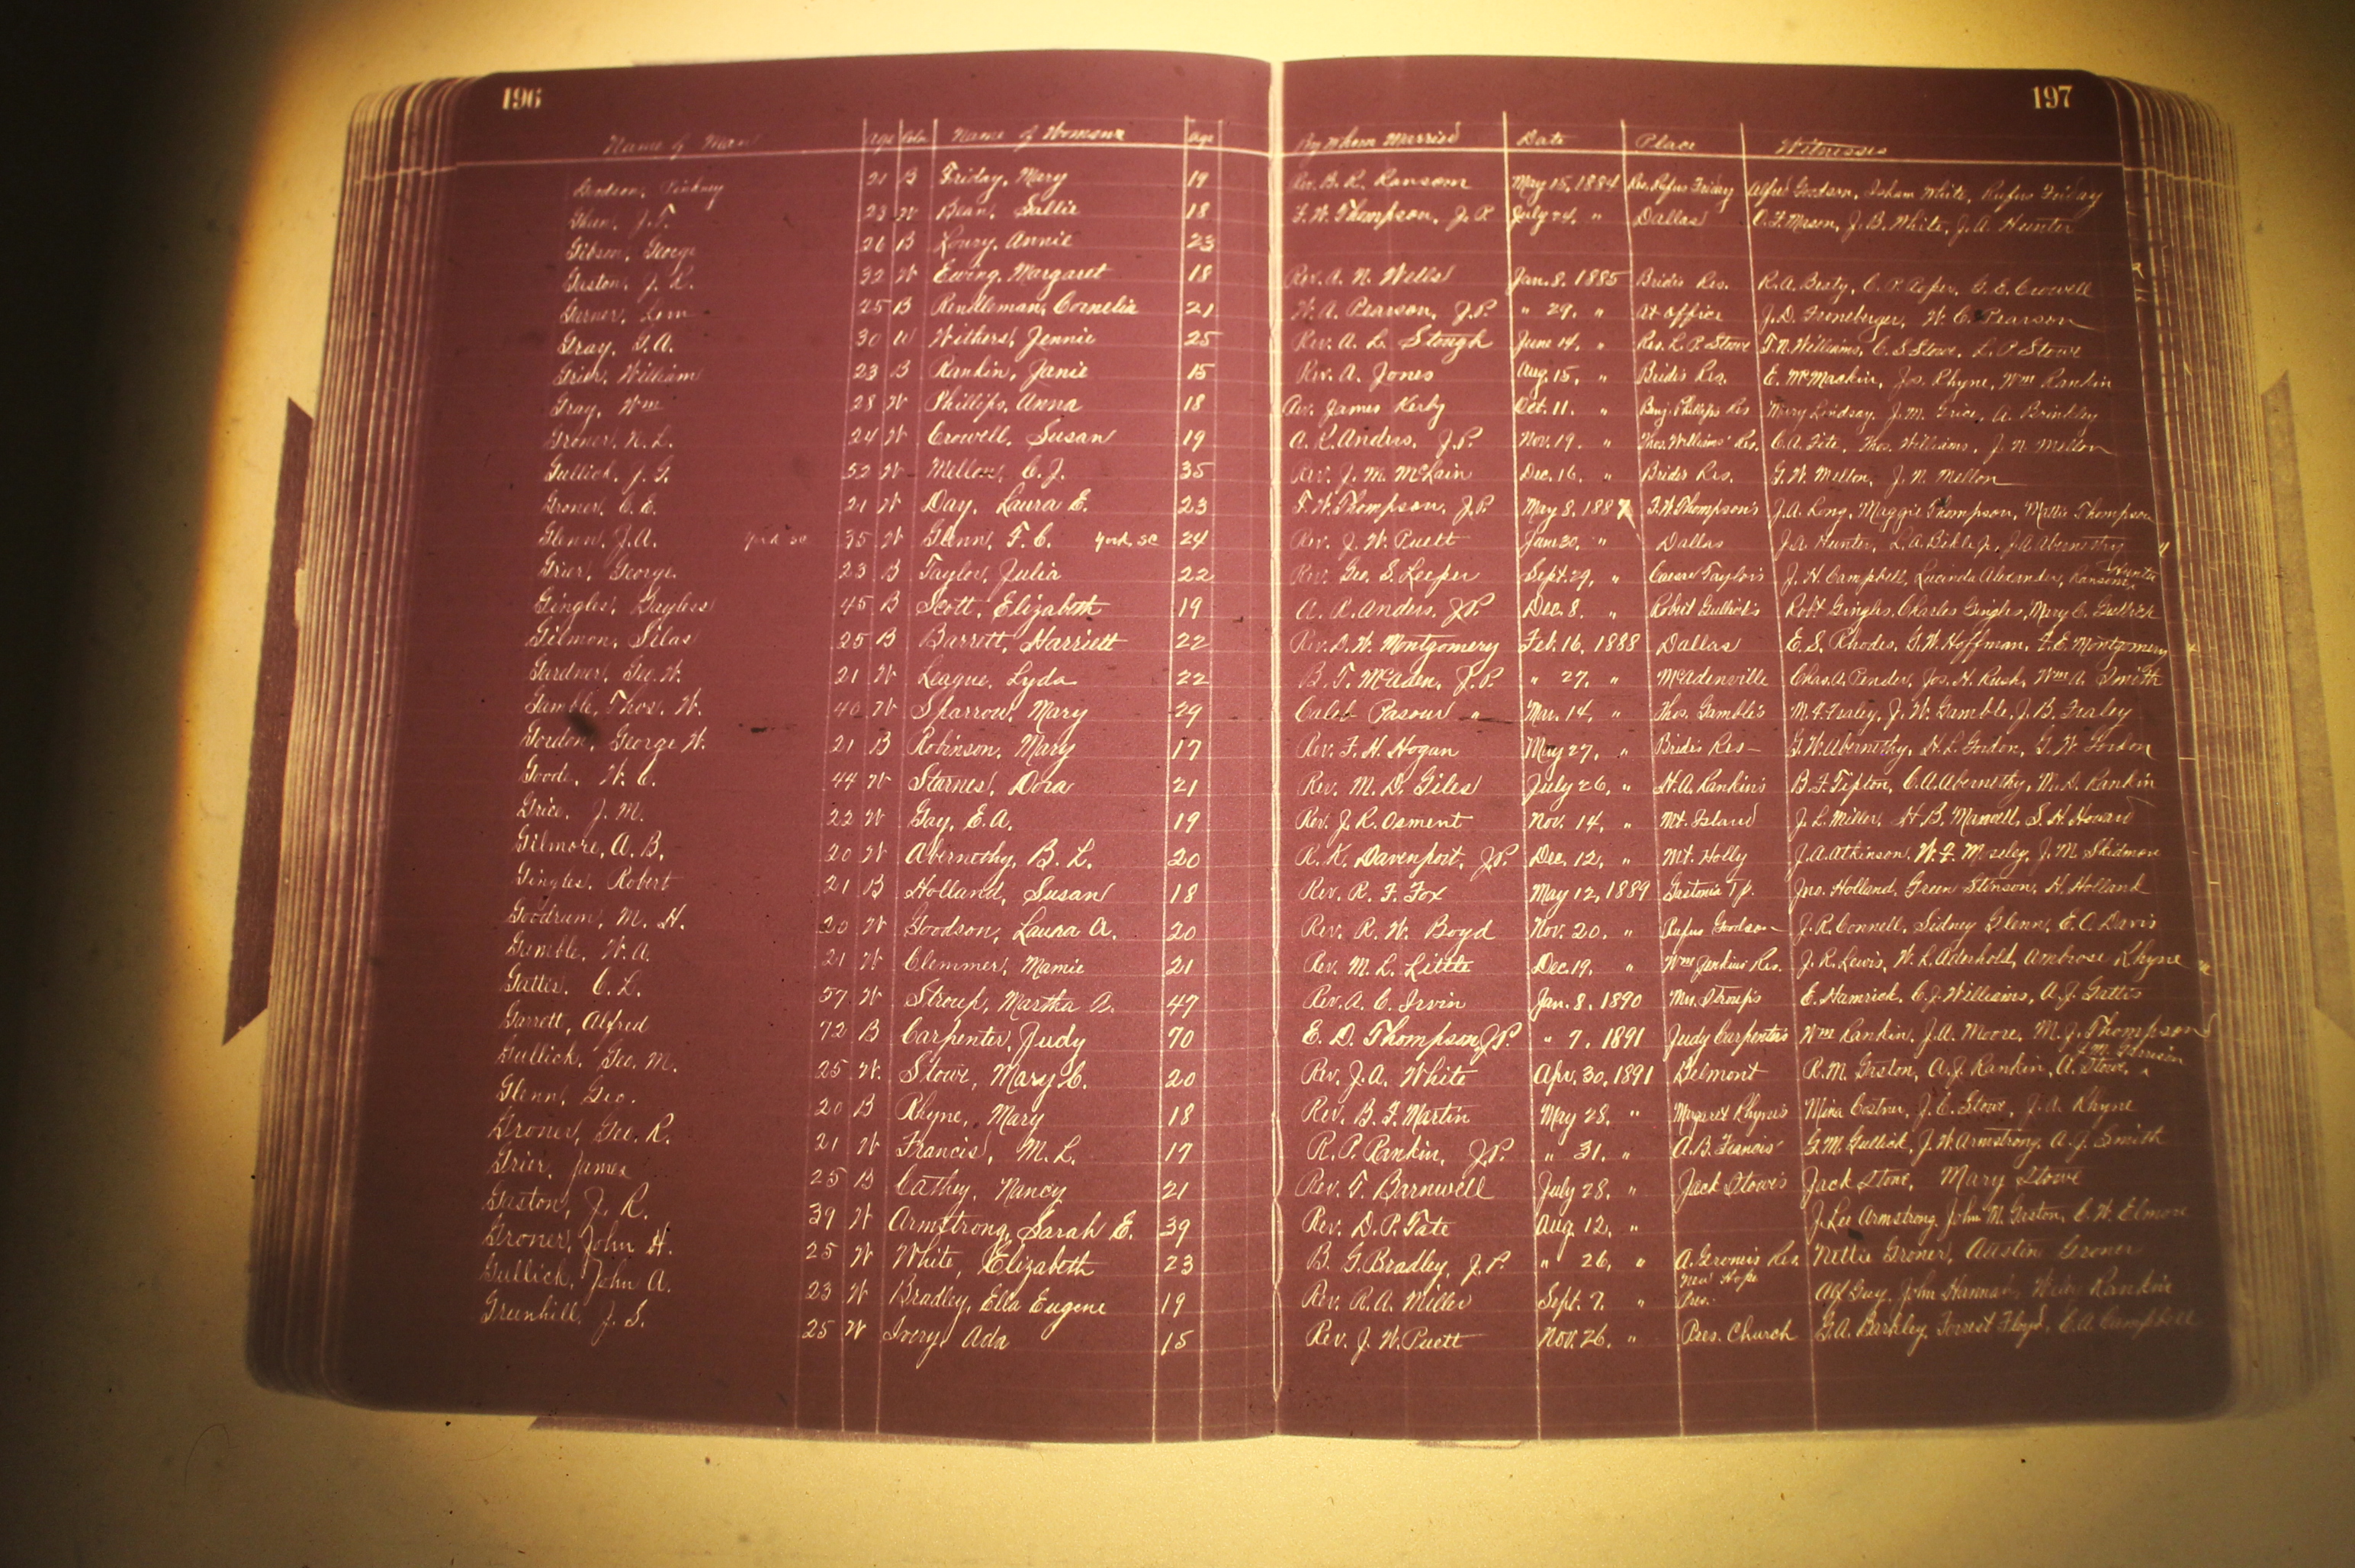 196
197
Name of Man Age Color Name of Womans Age By Whom Married Date Place Witnesses
Goodson, Pinkney 21 B Friday, Mary 19 Rev. B. R. Ransom May 15, 1884 Res. Rufus Friday Alfred Goodson, Isham White, Rufus Friday
J. F. 23 W Bean, Sallie 18 F. W. Thompson, J. P. July 24, " Dallas O. F. Mason, J. B. White, J. A. Hunter
Gibson, George 26 B Loury, Annie 23
Gaston, J. R. 32 W Ewing, Margaret 18 Rev. A. N. Wells Jan. 8, 1885 Bride's Res. R. A. Beaty, C. P. G. E. Crowell
Garner, Lem 25 B Rendleman, Cornelia 21 W. A. Pearson, J. P. " 29, " At office J. D. Froneberger, W. C. Pearson
Gray, G. A. 30 W Withers, Jennie 25 Rev. A. L. Stough June 14, " Res. L. P. Stowe T. N. Williams, C. S. Stowe, L. P. Stowe
Grier, William 23 B Rankin, Janie 15 Rev. A. Jones Aug. 15, " Bride's Res. E. McMackin, Jos. Rhyne, Wm Rankin
Gray, Wm 28 W Phillips, Anna 18 Rev. James Kerby Oct. 11, " Benj. Phillips Res Mary Lindsay, J. M. Grice, A. Brinkley
Groner, N. L. 24 W Crowell, Susan 19 A. R. Anders, J. P. Nov. 19, " Thos. Williams' Res. C. A. Fite, Thos. Williams, J. N. Mellon
Gullick, J. G. 52 W Mellon, C. J. 35 Rev. J. M. McLain Dec. 16, " Bride's Res. G. W. Mellon, J. N. Mellon
Groner, C. E. 21 W Day, Laura E. 23 F. W. Thompson, J. P. May 8, 1887 F. W. Thompson's J. A. Long, Maggie Thompson, Mattie Thompson
Glenn, J. A. York SC 35 W Glenn, F. C. York, SC 24 Rev. J. W. Puett June 20, " Dallas J. A. Hunter, L. A. Bikle Jr., J. A. Abernethy
Grier, George 23 B Taylor, Julia 22 Rev. Geo. S. Leeper Sept. 29, " Caesar Taylor's J. H. Campbell, Lucinda Alexander, Ransom Hunter
Gingles, Bayless 45 B Scott, Elizabeth 19 A. R. Anders, J. P. Dec. 8, " Robert Gullick's Robt Gingles, Charles Gingles, Mary C. Gullick
Gilmon, Silas 25 B Barrett, Harriett 22 Rev. D. W. Montgomery Feb. 16, 1888 Dallas E. S. Rhodes, G. W. Hoffman, F. E. Montgomery
Gardner, Geo. W. 21 W League, Lyda 22 B. T. McAden, J. P. " 27, " McAdenville Chas. A. Pender, Jos. H. Rush, Wm A. Smith
Gamble, Thos. W. 40 W Sparrow, Mary 29 Caleb Pasour " Mar. 14, " Thos. Gamble's M. F. Fraley, J. W. Gamble, J. B. Fraley
Gordon, George W. 21 B Robinson, Mary 17 Rev. F. H. Hogan May 27, " Bride's Res- G. W. Abernethy, H. L. Gordon, G. W Gordon
Goode, W. C. 44 W Starnes, Dora 21 Rev. M. D. Giles July 26, " H. A. Rankin's B. F. Tipton, C. A. Abernethy, W. D. Rankin
Grice, J. M. 22 W Gay, E. A. 19 Rev. J. R. Osment Nov. 14, " Mt. Island J. L. Miller, H B. Maxwell, S. H. Howard
Gilmore, A. B. 20 W Abernethy, B. L. 20 R. K. Davenport, J. P. Dec. 12, " Mt. Holly J. A. Atkinson, W. F. Moseley, J. M. Skidmore
Gingles, Robert 21 B Holland, Susan 18 Rev. R. F. Fox May 12, 1889 Gastonia Tp. Jno. Holland, Green Stinson, H. Holland
Goodrum, M. H. 20 W Goodson, Laura A. 20 Rev. R. W. Boyd Nov. 20, " Rufus Goodson J. R. Connell, Sidney Glenn, E. C. Davis
Gamble, W. A. 21 W Clemmer, Mamie 21 Rev. M. L. Little Dec. 19, " Wm Jenkins Res. J. R. Lewis, W. L. Aderhold, Ambrose Rhyne
Gattis, C. L. 57 W Stroup, Martha A. 47 Rev. A. C. Irvin Jan. 8, 1890 Mrs. Stroup's E. Hamrick, C. J. Williams, A. J. Gattis
Garrett, Alfred 72 B Carpenter, Judy 70 E. D. Thompson, J. P. " 7, 1891 Judy Carpenter's Wm Rankin, J. A. Moore, M. J. Thompson
Gullick, Geo. M. 25 W. Stowe, Mary C. 20 Rev. J. A. White Apr. 30, 1891 Belmont R. M. Gaston, A. J. Rankin, A. Stowe, J. M. Garrison
Glenn, Geo. 20 B Rhyne, Mary 18 Rev. B. F. Martin May 28, " Margaret Rhyne's Mina Costner, J. C. Stowe, J. A. Rhyne
Groner, Geo. R. 21 W Francis, M. L. 17 R. P. Rankin, J. P. " 31, " A. B. Francis' G. M. Gullick, J. W. Armstrong, A. J. Smith
Grier, James 25 B Cathey, Nancy 21 Rev. T. Barnwell July 28, " Jack Stowe's Jack Stowe, Mary Stowe
Gaston, J. R. 39 W Armstrong, Sarah E. 39 Rev. D. P. Tate Aug. 12, " J. Lee Armstrong, John M. Gaston, E. W. Elmore
Groner, John H. 25 W White, Elizabeth 23 B. G. Bradley, J. P. " 26, " A. Groner's Res. Nettie Groner, Austin Groner
Gullick, John A. 23 W Bradley, Ella Eugene 19 Rev. R. A. Miller Sept. 7, " New Hope Pres. Alf Guy, John Hannah, Wiley Rankin
Greenhill, J. S. 25 W Ivery, Ada 15 Rev. J. W. Puett Nov. 26, " Pres. Church G. A. Barkley, Forrest Floyd, C. A. Campbell